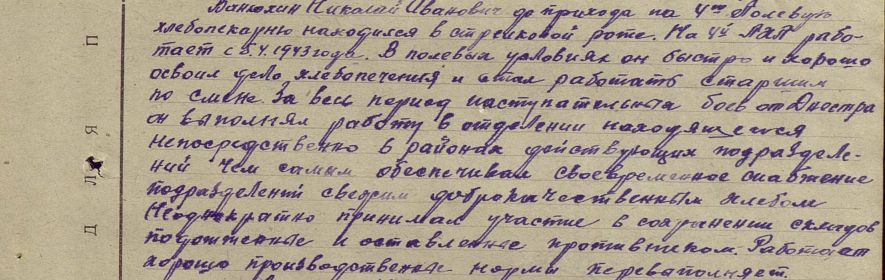 Ванюхин Николай Иванович до прихода на 4ую Полевую
хлебопекарню находился в стрелковой роте. На 4й ПХП рабо-
тает с 5.4.1943 года. В полевых условиях он быстро и хорошо
освоил дело хлебопечения и стал работать старшим
по смене. За весь период наступательных боев от Днестра
он выполнял работу в отделении находящегося
непосредственно в районах действующих подразделе-
ний чем самым обеспечивал своевременное снабжение
подразделений свежим доброкачественным хлебом
Неоднократно принимал участие в сохранении складов
подоженные и оставленые противником. Работает
хорошо производственные нормы перевыполняет.
Д Л Я П